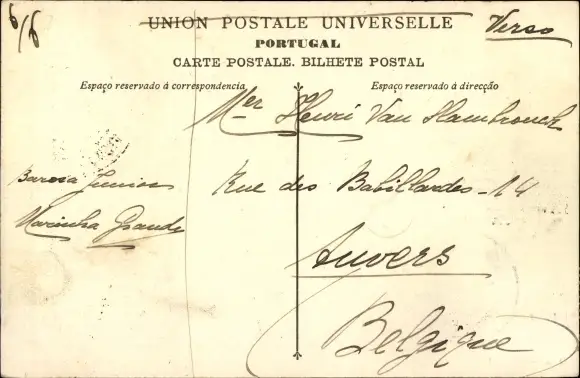 6/6
Verso
UNION POSTALE UNIVERSELLE
PORTUGAL
CARTE POSTALE. BILHETE POSTAL
Espaço reservado á correspondencia
Espaço reservado á direcção
Mer Henri Van Hambrouck
Barosa Junior
Marinha Grande
Rue des Babillardes - 14
Anvers
Belgique